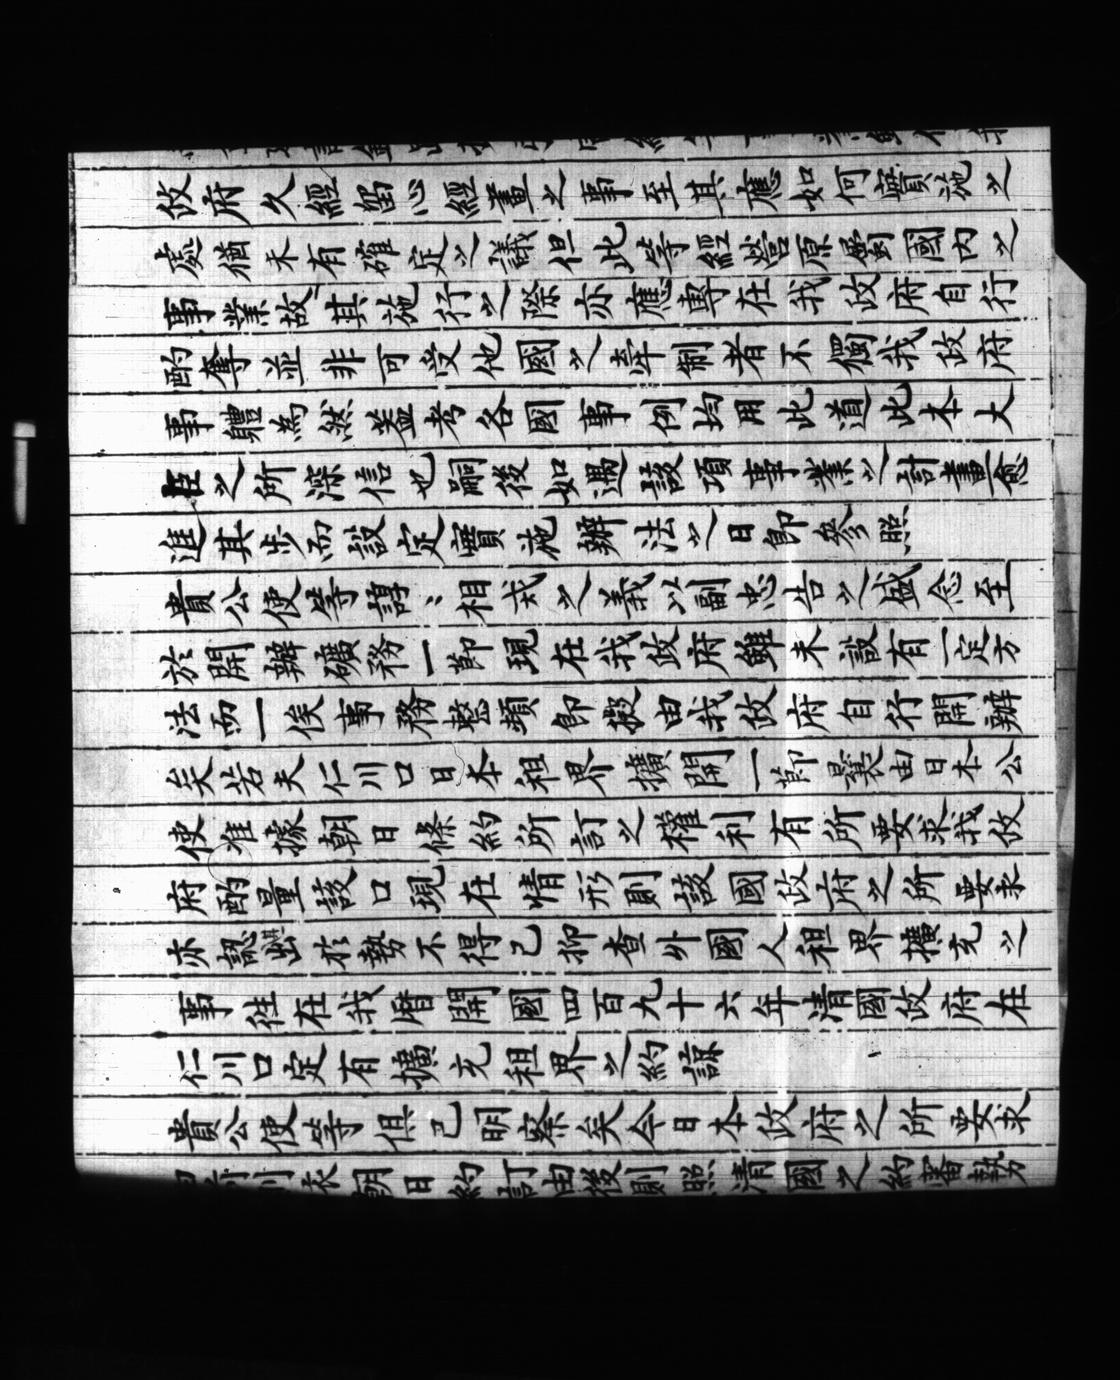 政府久經留心經畫之事至其應如何實施之
處猶未有確定之議但此等經營原屬國內之
事業故其施行之際亦應專在我政府自行
酌奪並非可受他國之牽制者不獨我政府
事體為然蓋考各國事例均用此道此本大
臣之所深信也嗣後如遇該項事業之計畫愈
進其步而設定實施辦法之日即參照
貴公使等諄〻相戒之義以副忠告之盛念至
於開辦礦務一節現在我政府雖未設有一定方
法而一俟事務整頓即擬由我政府自行開辦
矣若夫仁川口日本租界擴開一節曩由日本公
使准據朝日條約所訂之權利有所要求我政
府酌量該口現在情形則該國政府之所要求
亦認其出於勢不得已抑查外國人租界擴充之
事徃在我曆開國四百九十六年清國政府在
仁川口定有擴充租界之約諒
貴公使等俱已明察矣今日本政府之所要求
朝日約訂由後則照清國之約審勢